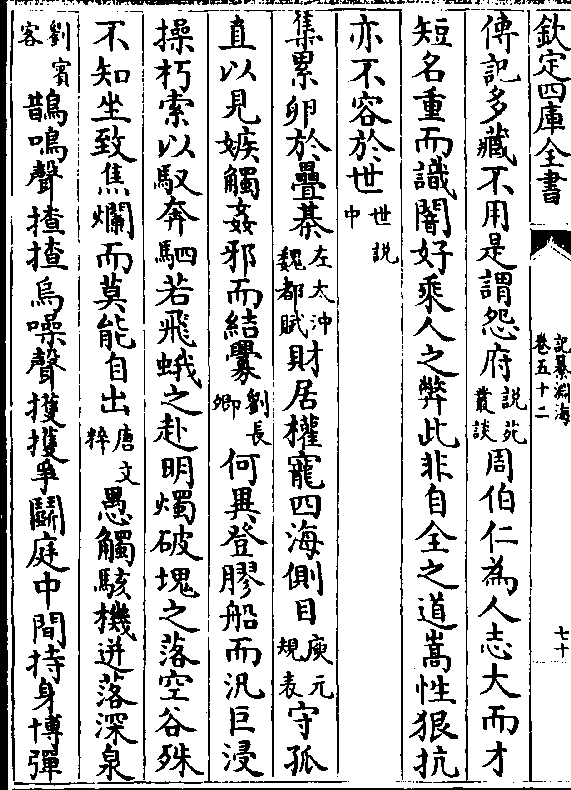 欽定四庫全書
記纂淵海
卷五十二
七十
傳記多藏不用是謂怨府說苑叢談周伯仁為人志大而才
短名重而識闇好乘人之弊此非自全之道嵩性狠抗
亦不容於世世說中
集累卵於疊棊左太沖魏都賦財居權寵四海側目庾元規表守孤
直以見嫉觸姦邪而結釁劉長卿何異登膠船而汎巨浸
操朽索以馭奔駟若飛蛾之赴明燭破塊之落空谷殊
不知坐致焦爛而莫能自出唐文粹愚觸駭機迸落深泉
劉賓客鵲鳴聲揸揸烏噪聲擭擭爭鬬庭中間持身博彈